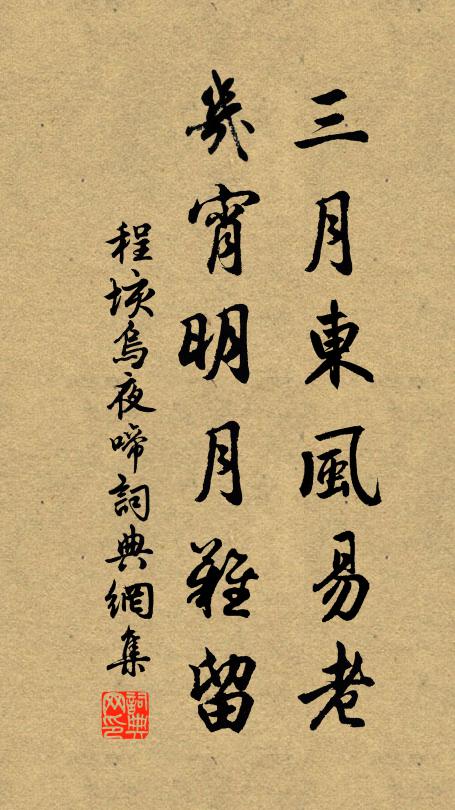 三月東風易老
幾宵明月難留
程垓烏夜啼詞典網集
詞典网印